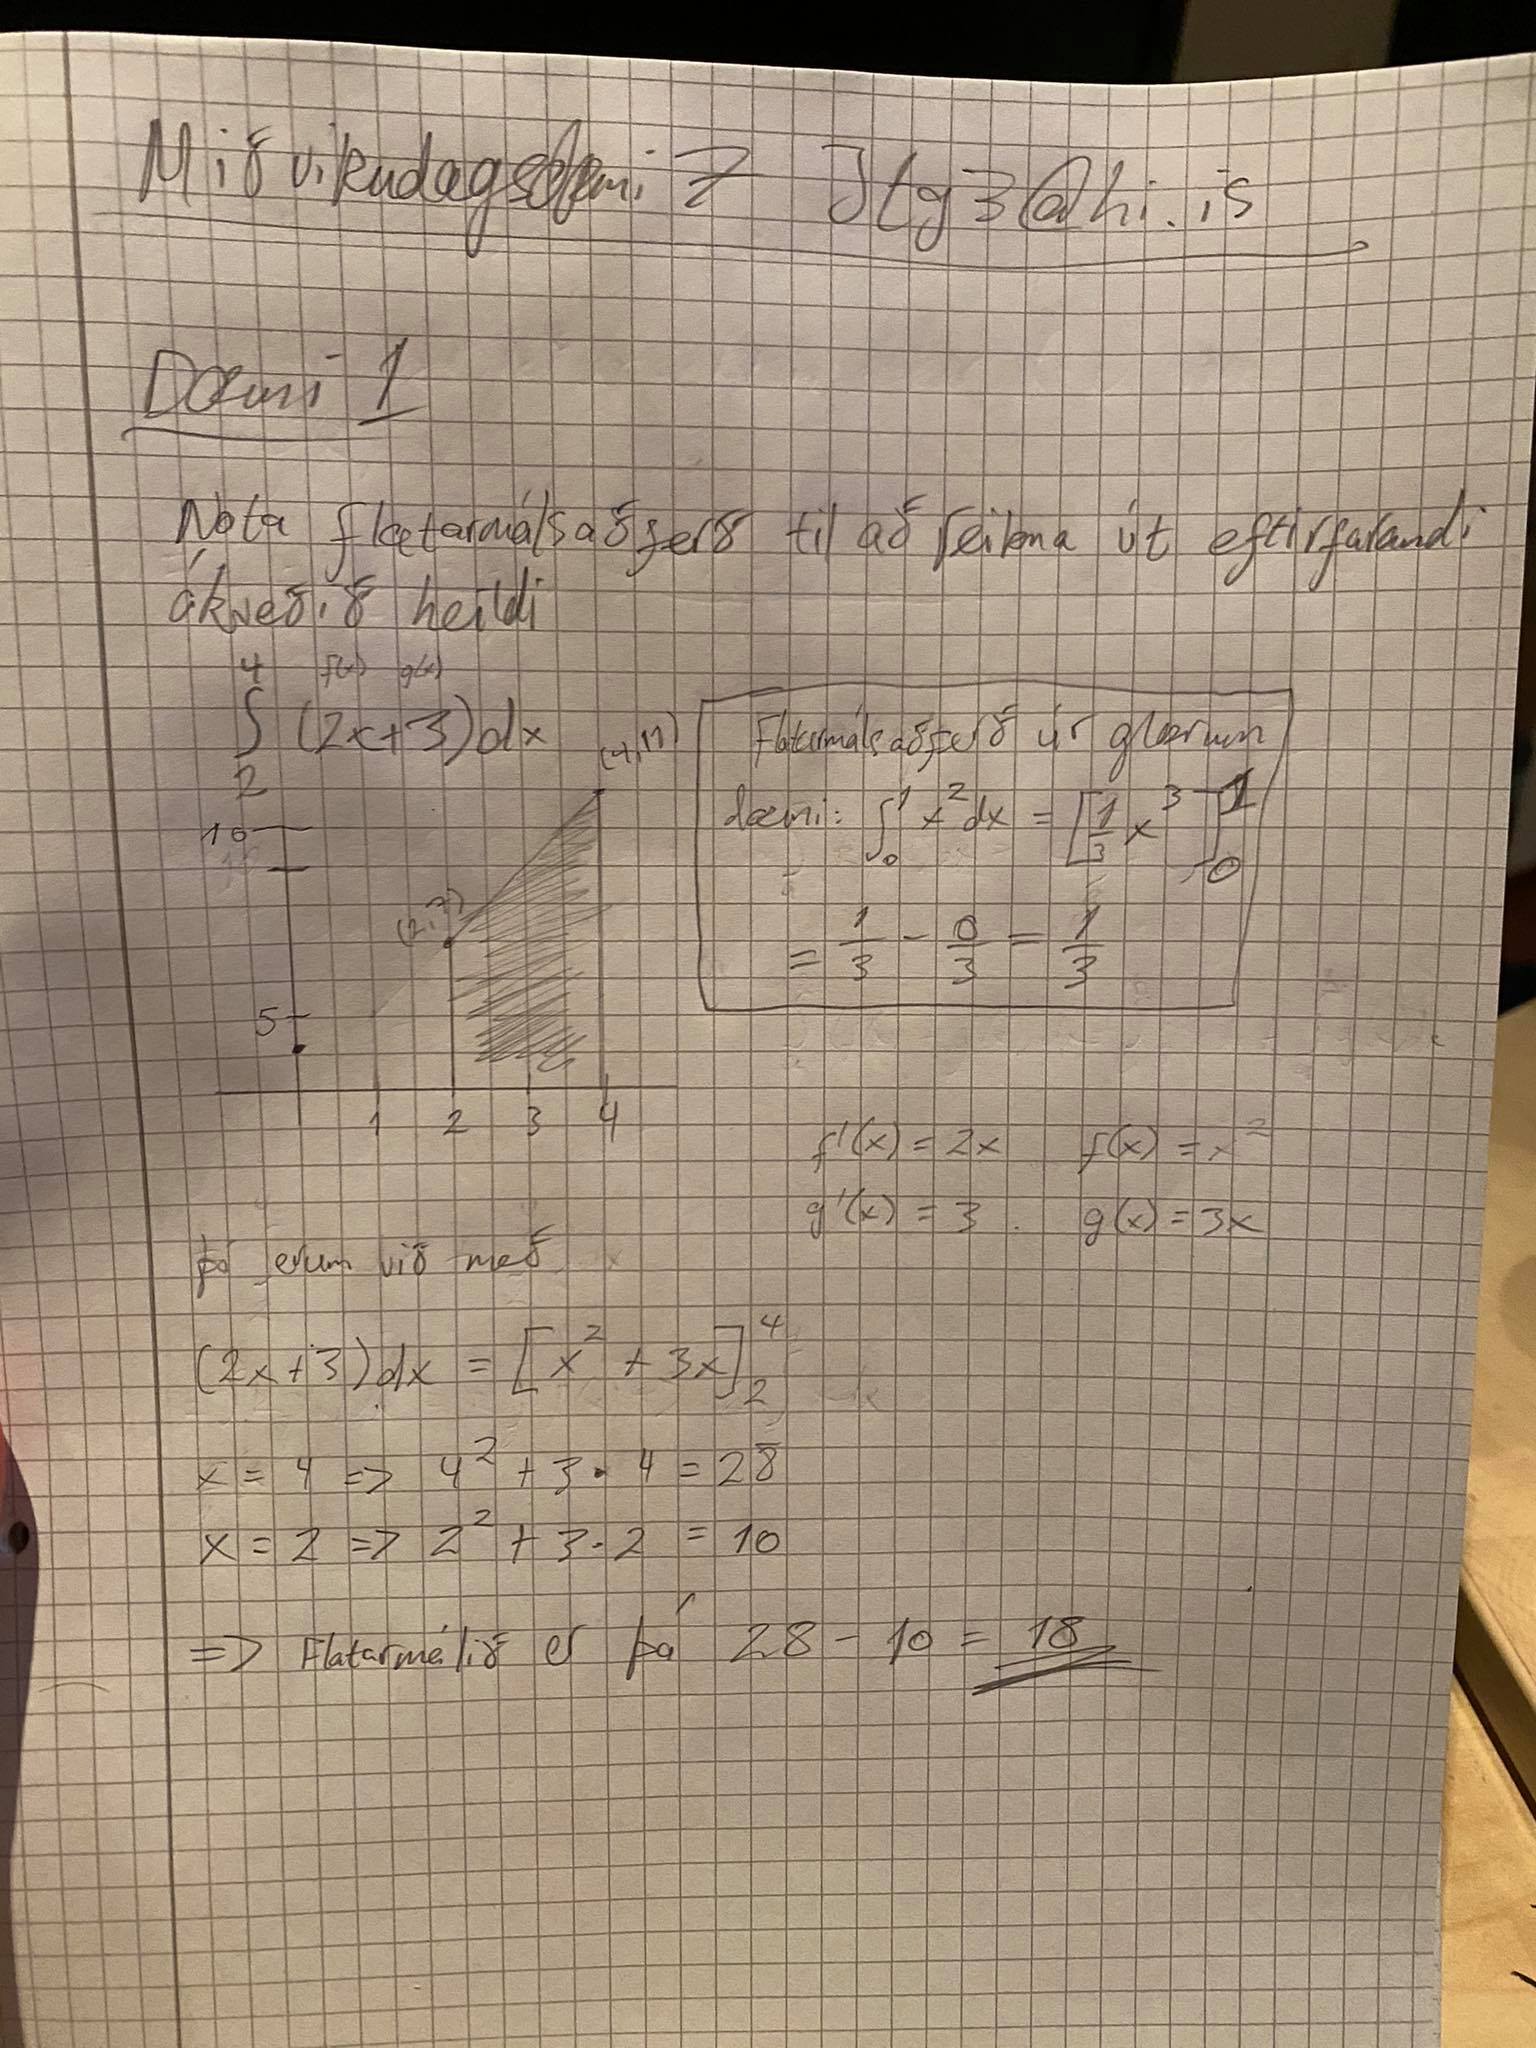 Miðvikudagsdæmi 7 Jtg3@hi.is
Dæmi 1
Nota flatarmálsaðferð til að reikna út eftirfarandi
ákveðið heildi
4 f(x) g(x)
∫ (2x+3)dx
2
(4,11)
10
(2,7)
5
1 2 3 4
Flatarmálsaðferð úr glærum
dæmi: ∫₀¹ x² dx = [1/3 x³]₀¹
= 1/3 - 0/3 = 1/3
f'(x) = 2x f(x) = x²
g'(x) = 3 g(x) = 3x
þá erum við með
(2x+3)dx = [x² + 3x]₂⁴
x = 4 => 4² + 3·4 = 28
x = 2 => 2² + 3·2 = 10
=> Flatarmálið er þá 28 - 10 = 18